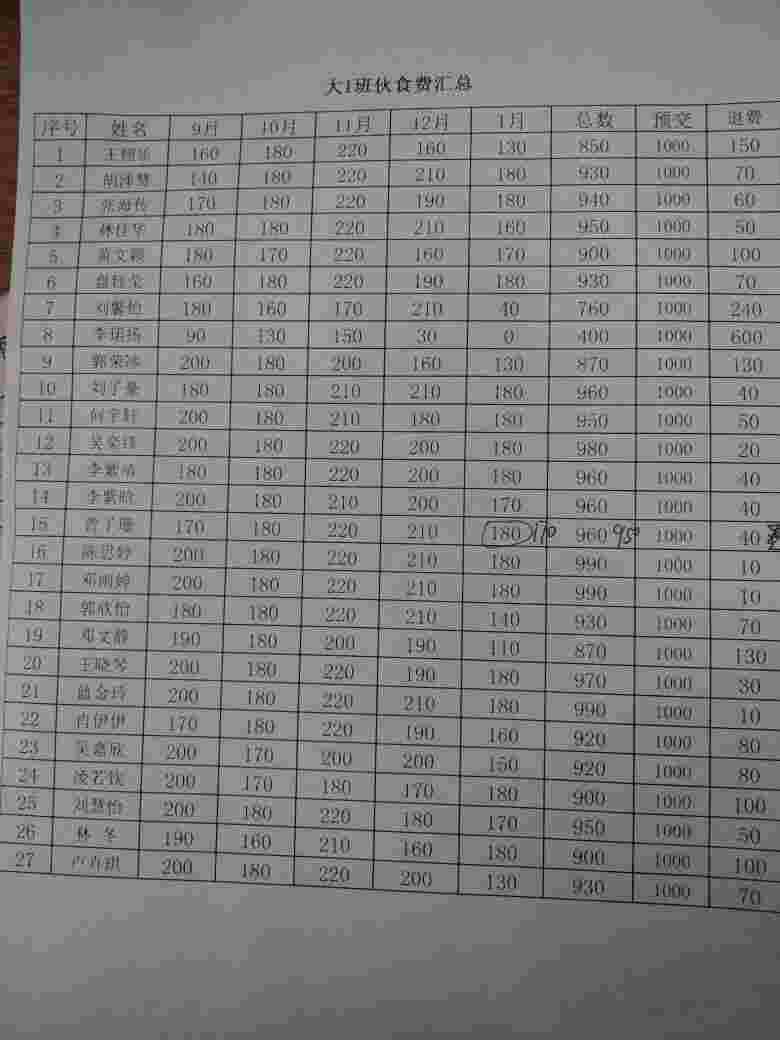 大1班伙食费汇总
序号 姓名 9月 10月 11月 12月 1月 总数 预交 退费
1 160 180 220 160 130 850 1000 150
2 140 180 220 210 180 930 1000 70
3 张海传 170 180 220 190 180 940 1000 60
4 林佳华 180 180 220 210 160 950 1000 50
5 黄文颖 180 170 220 160 170 900 1000 100
6 160 180 220 190 180 930 1000 70
7 刘馨怡 180 160 170 210 40 760 1000 240
8 90 130 150 30 0 400 1000 600
9 郭荣冰 200 180 200 160 130 870 1000 130
10 刘子豪 180 180 210 210 180 960 1000 40
11 何宇轩 200 180 210 180 180 950 1000 50
12 200 180 220 200 180 980 1000 20
13 李紫晴 180 180 220 200 180 960 1000 40
14 李紫晗 200 180 210 200 170 960 1000 40
15 曾子珊 170 180 220 210 180 170 960 950 1000 40
16 陈思婷 200 180 220 210 180 990 1000 10
17 邓雨婷 200 180 220 210 180 990 1000 10
18 郭欣怡 180 180 220 210 140 930 1000 70
19 邓文静 190 180 200 190 110 870 1000 130
20 王晓琴 200 180 220 190 180 970 1000 30
21 蓝金玲 200 180 220 210 180 990 1000 10
22 肖伊伊 170 180 220 190 160 920 1000 80
23 吴嘉欣 200 170 200 200 150 920 1000 80
24 凌若钦 200 170 180 170 180 900 1000 100
25 刘慧怡 200 180 220 180 170 950 1000 50
26 林冬 190 160 210 160 180 900 1000 100
27 卢卉琪 200 180 220 200 130 930 1000 70